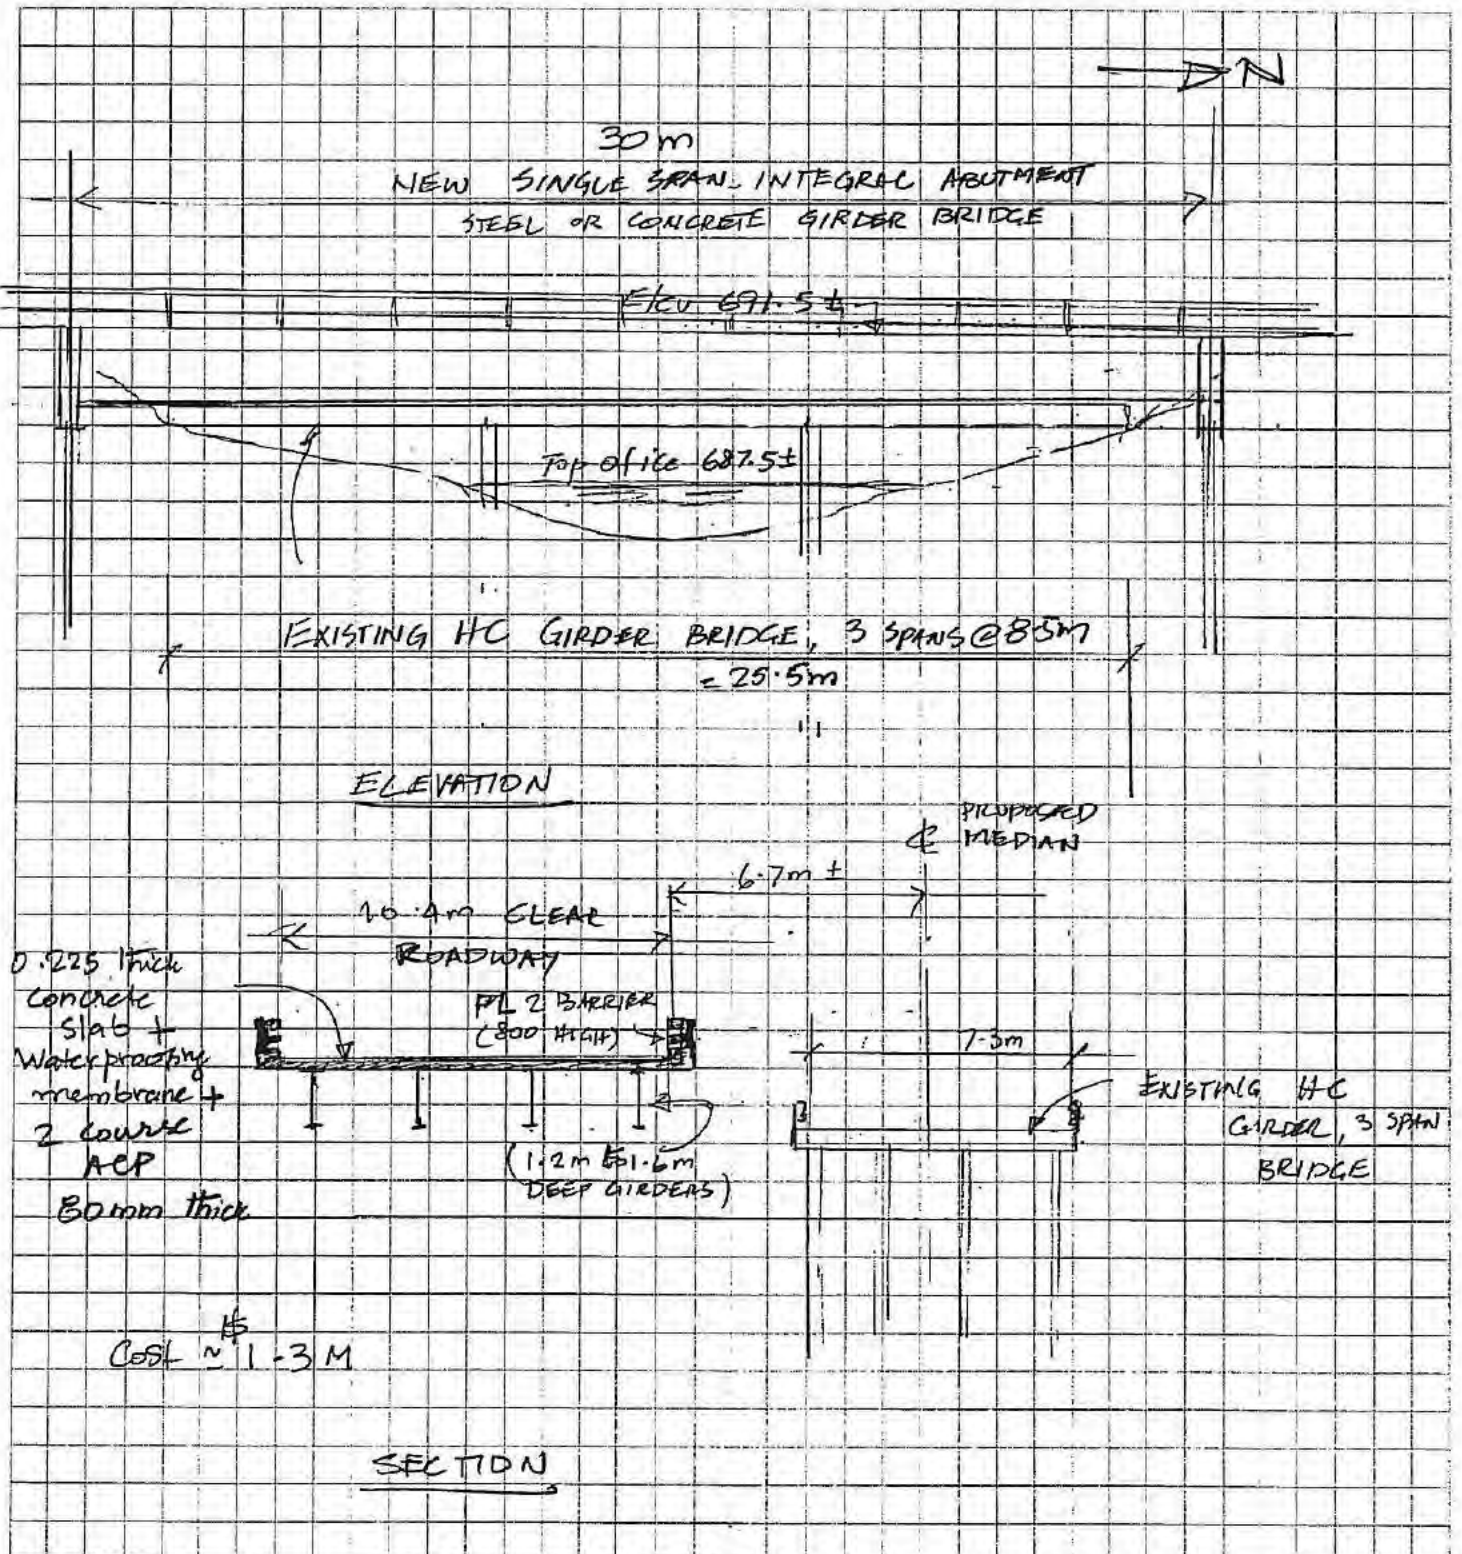 N
30 m
NEW SINGLE SPAN INTEGRAL ABUTMENT
STEEL OR CONCRETE GIRDER BRIDGE
Elev 691.5 ±
Top of ice 687.5±
EXISTING HC GIRDER BRIDGE, 3 SPANS @ 8.5m
= 25.5m
ELEVATION
℄ PROPOSED
MEDIAN
6.7m ±
10.4m CLEAR
ROADWAY
0.225 thick
concrete
slab +
waterproofing
membrane +
2 course
ACP
80mm thick
PL 2 BARRIER
(800 HIGH)
7.3m
(1.2m to 1.6m
DEEP GIRDERS)
EXISTING HC
GIRDER, 3 SPAN
BRIDGE
$
Cost ~ 1.3 M
SECTION